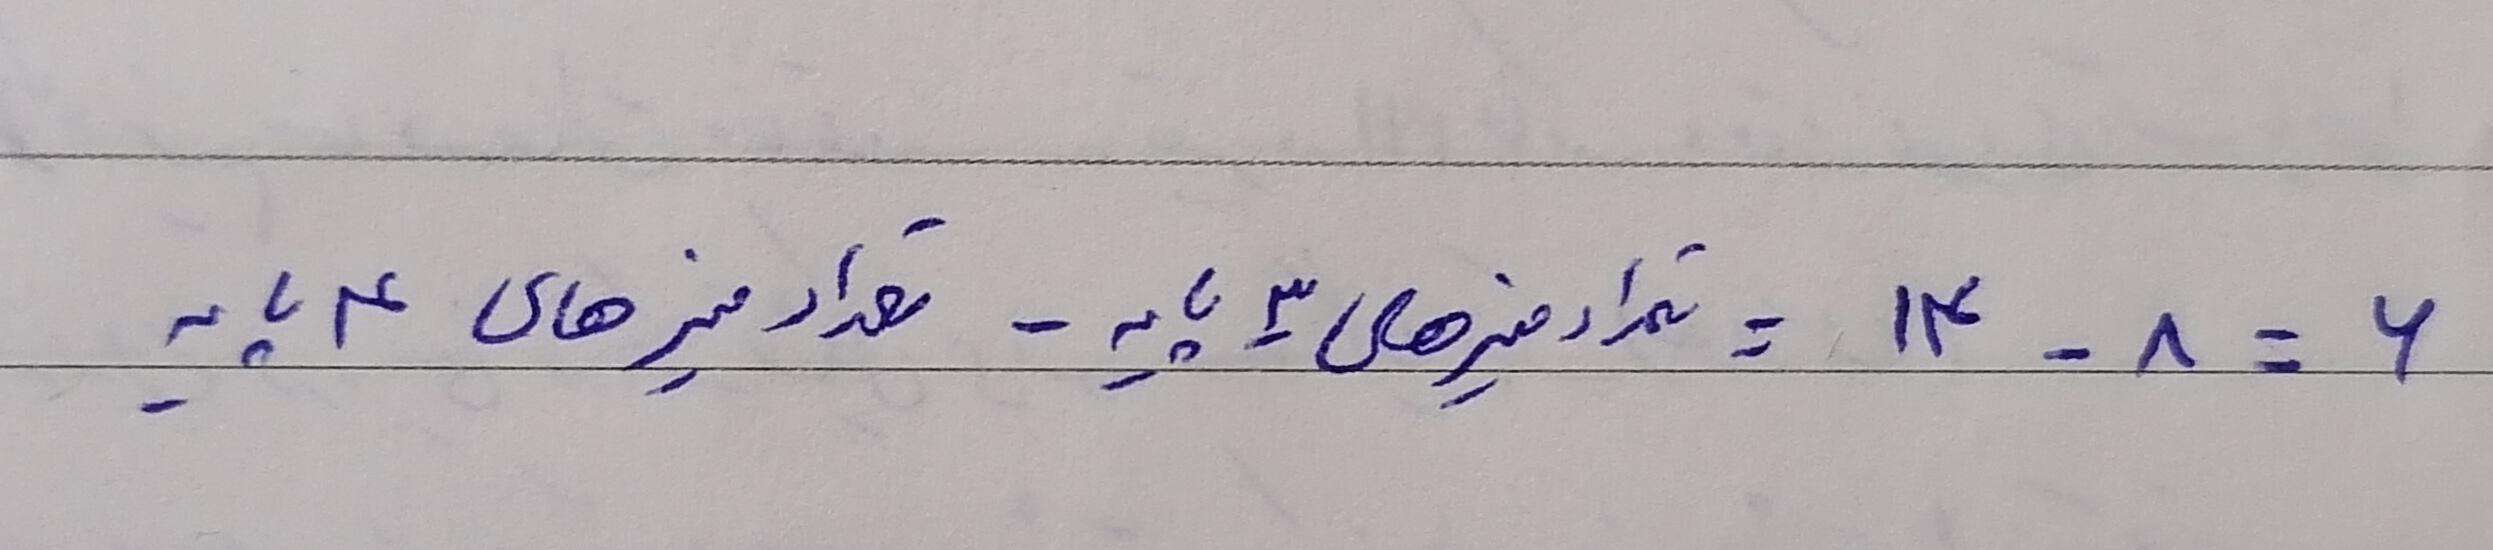 تعداد میزهای ۴ پایه - تعداد میزهای ۳ پایه = ۱۴ - ۸ = ۶